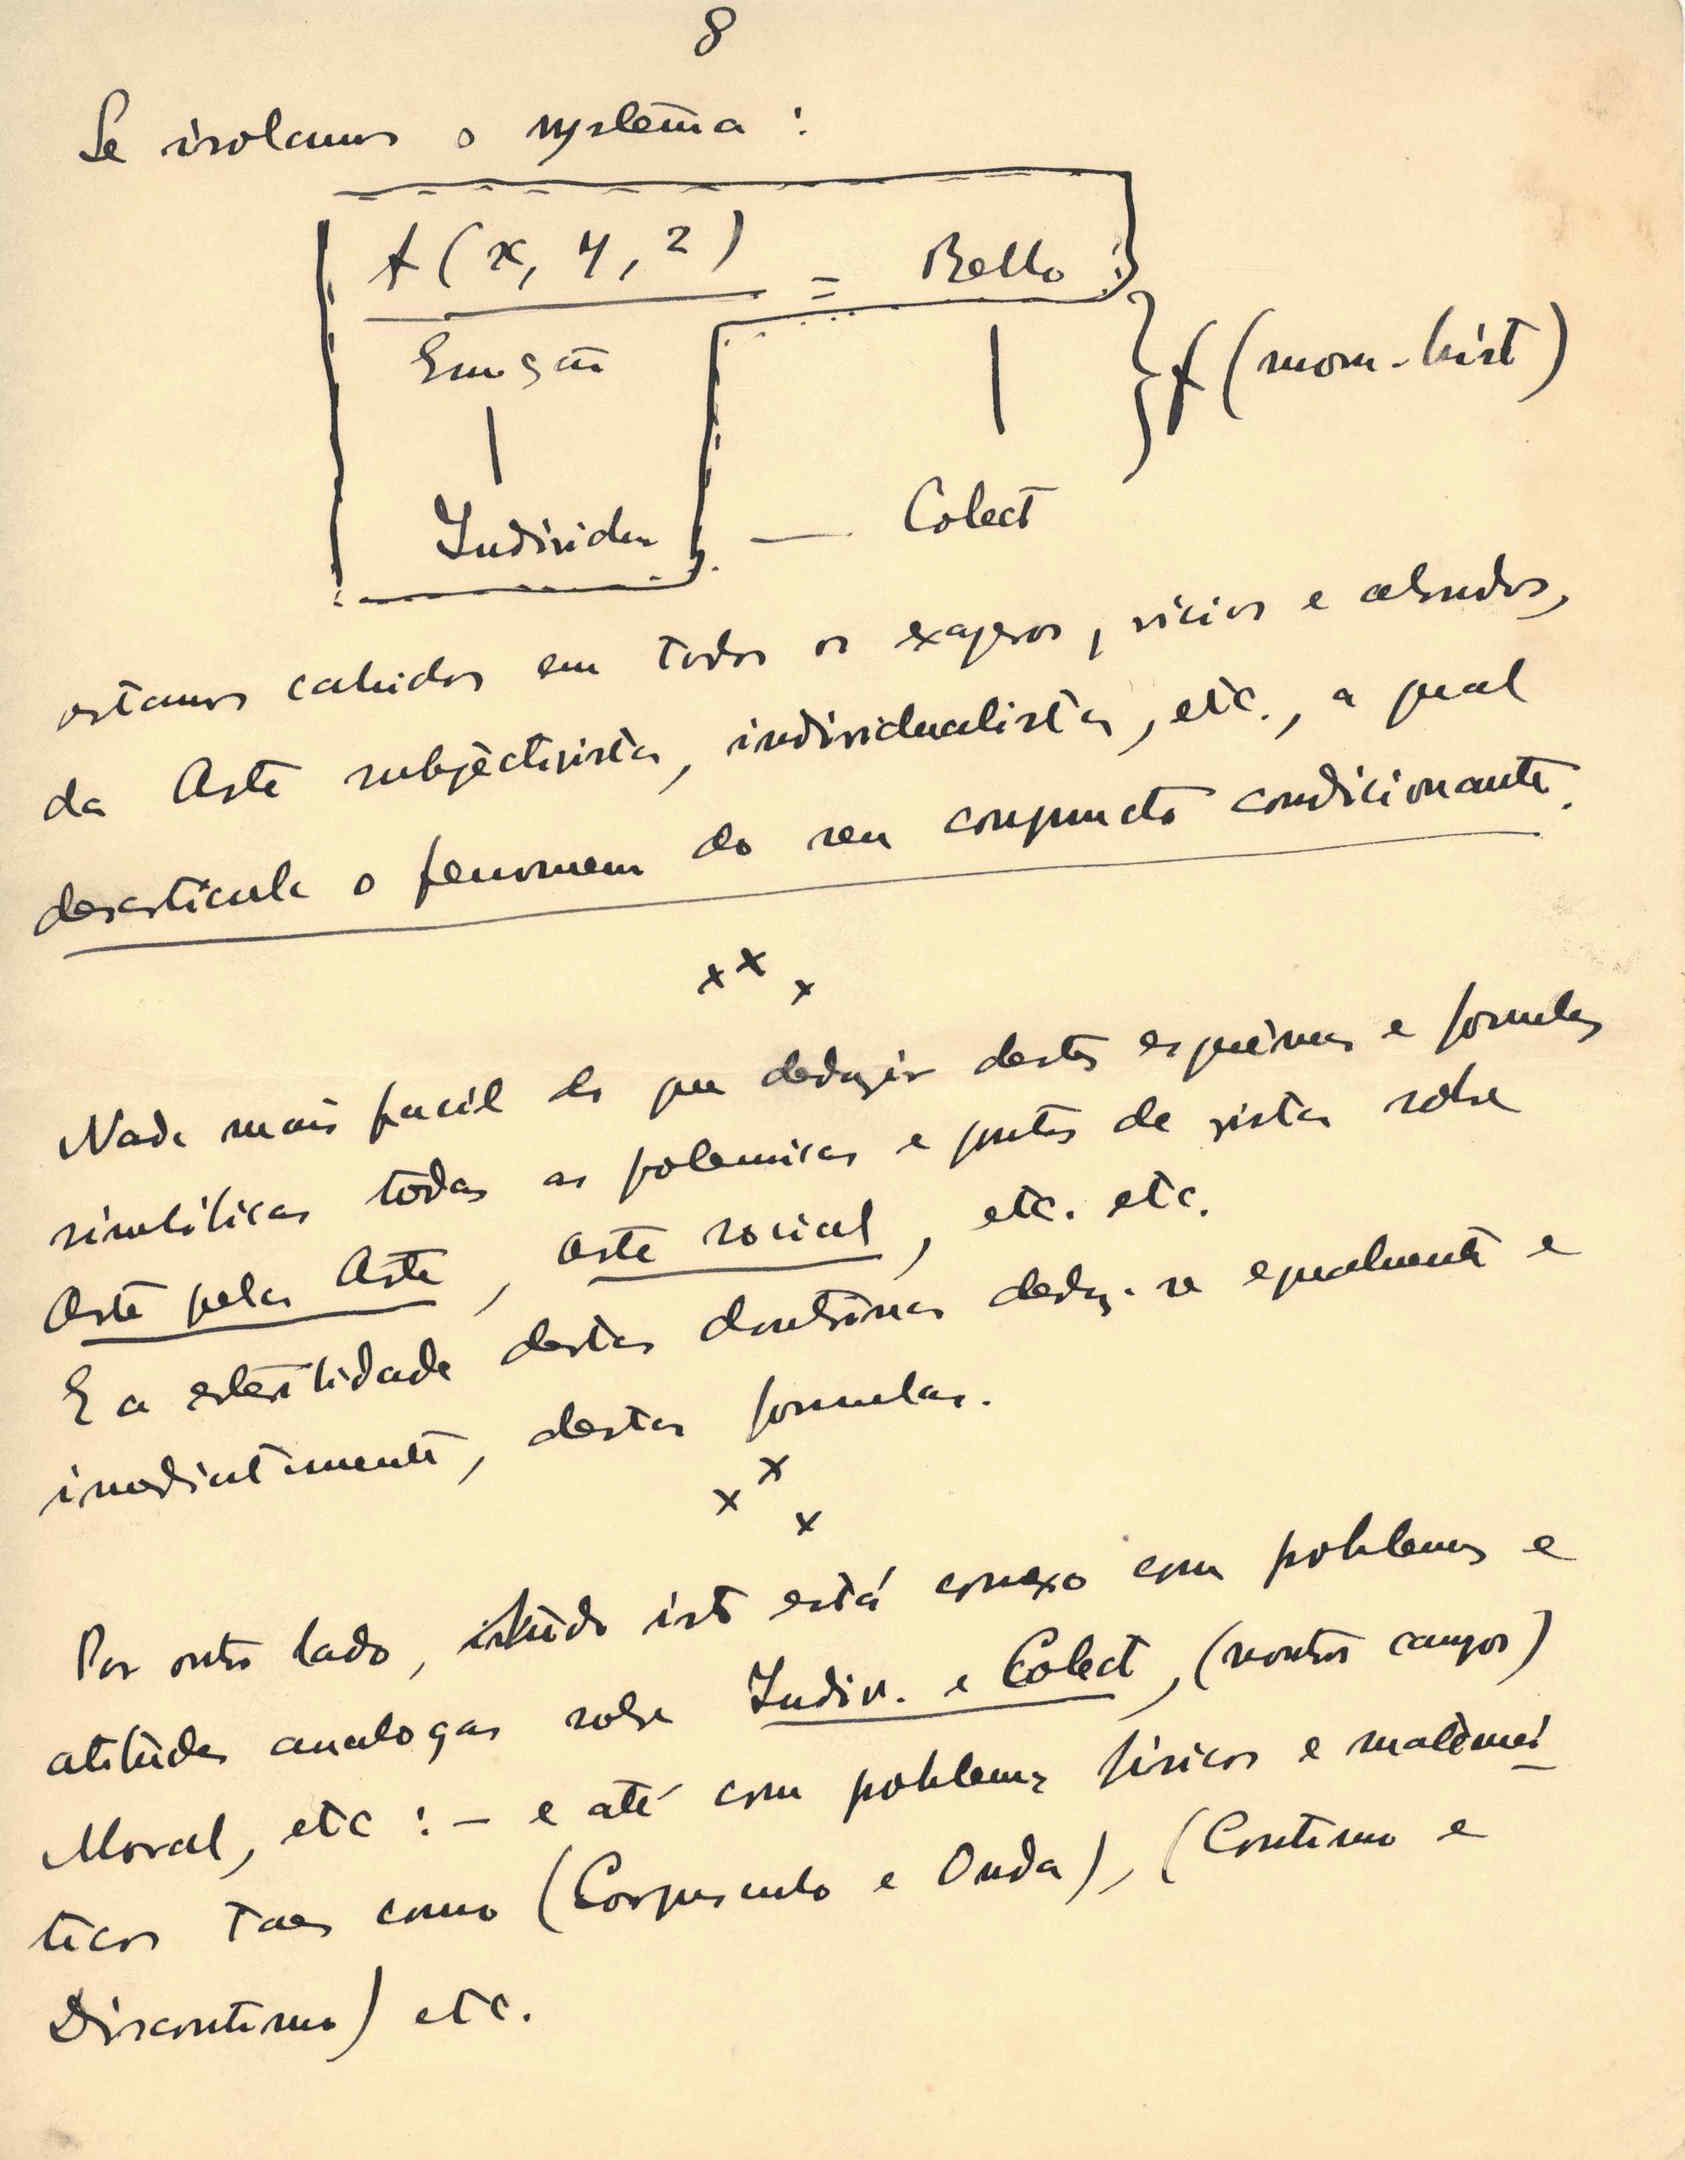 8
Se isolamos o systema :
f (x, y, z) = Bello
Emoção
f (mom. hist)
Individuo — Colect
estamos cahidos em todos os exageros, vicios e absurdos,
da Arte subjectivista, individualista, etc., a qual
desarticula o fenomeno do seu conjuncto condicionante.
x x x
Nada mais facil do que deduzir destes esquêmas e formulas
simbólicas todas as polemicas e pontos de vista sobre
Arte pela Arte, arte social, etc. etc.
E a esterilidade destas doutrinas deduz-se egualmente e
imediatamente, destas formulas.
x x x
Por outro lado, tudo isto está conexo com poblemas e
atitudes analogas sobre Indiv. e Colect, (noutros campos)
Moral, etc : – e até com poblemas fisicos e matemá-
ticos taes como (Corpusculo e Onda), (Continuo e
Discontinuo) etc.